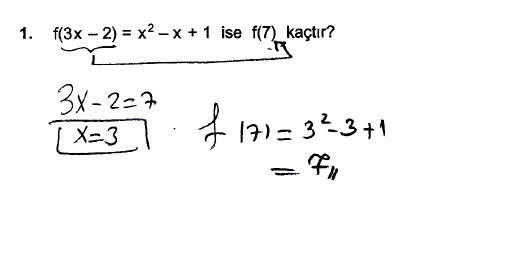 1. f(3x – 2) = x² – x + 1 ise f(7) kaçtır?
3x - 2 = 7
x = 3
f(7) = 3² - 3 + 1
= 7,,